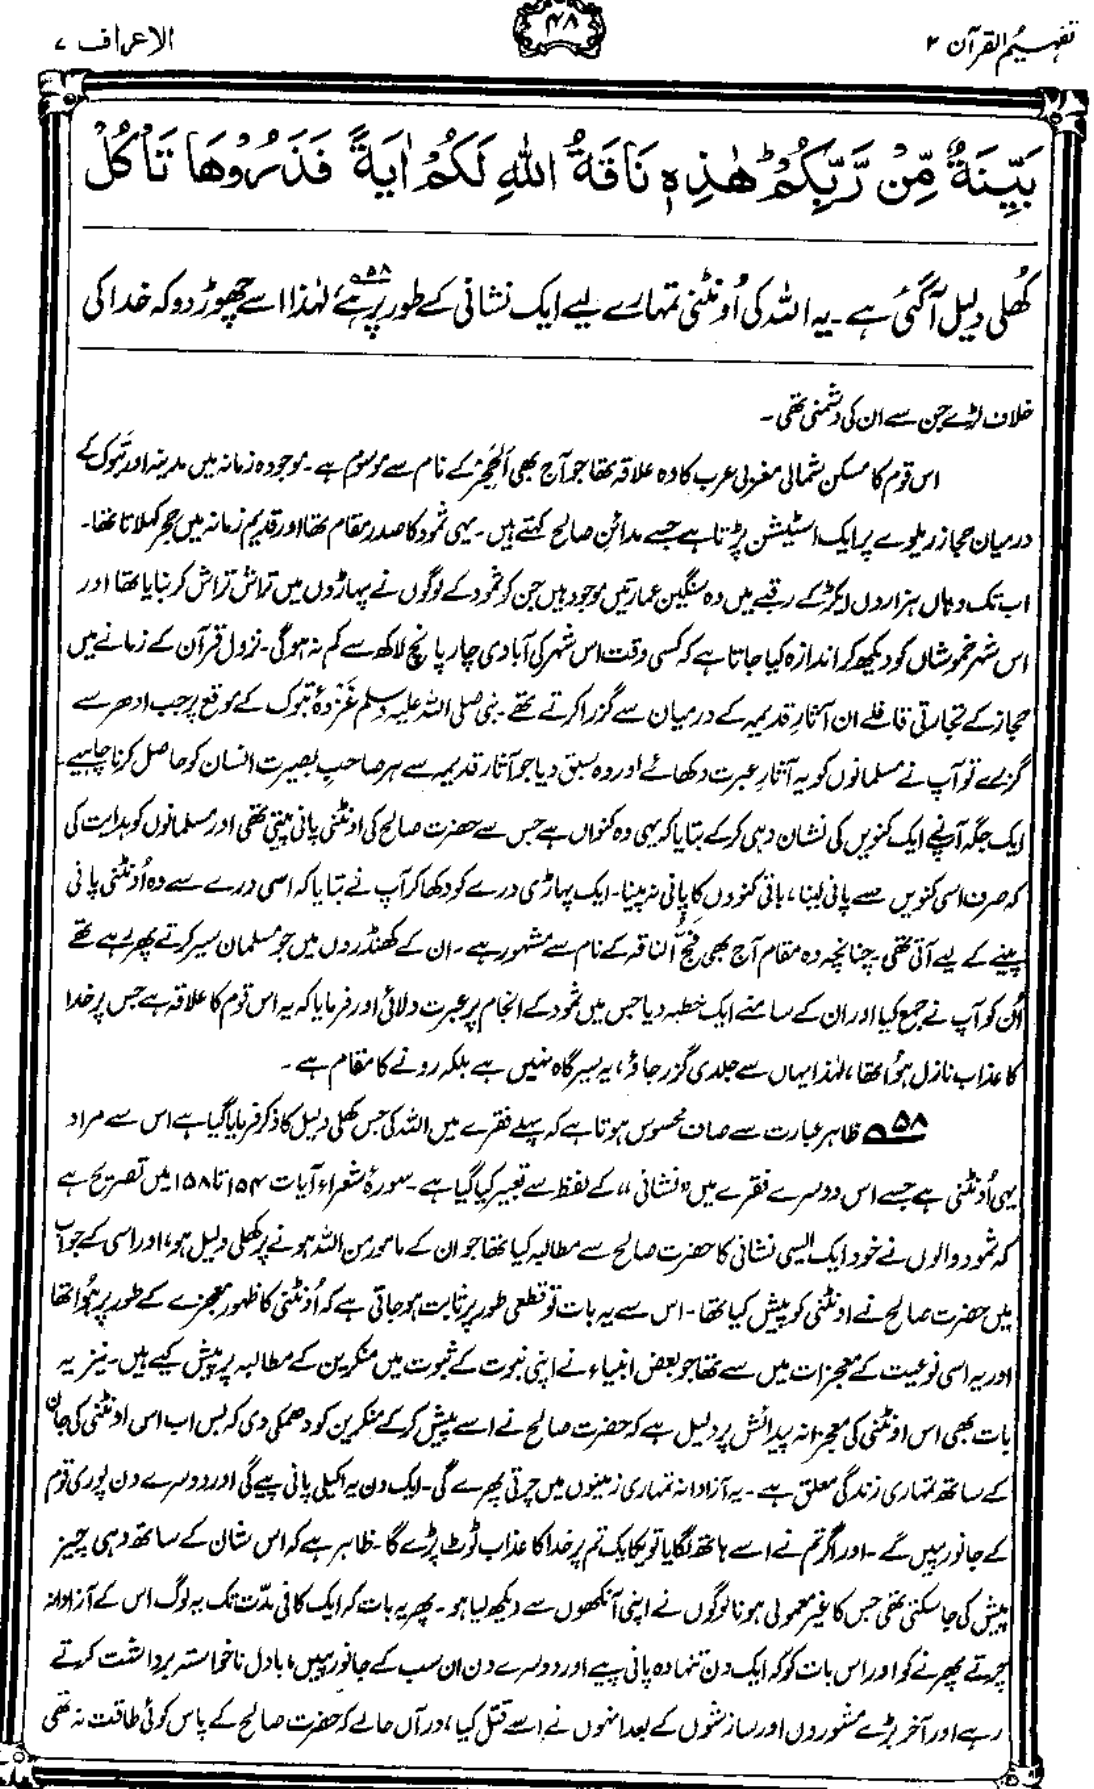 تفہیم القرآن ۲
۴۸
الاعراف ۷
بَيِّنَةٌ مِّنْ رَّبِّكُمْ ؕ هٰذِهٖ نَاقَةُ اللّٰهِ لَكُمْ اٰيَةً فَذَرُوْهَا تَاْكُلْ
کُھلی دلیل آگئی ہے۔ یہ اللہ کی اُونٹنی تمہارے لیے ایک نشانی کے طور پر ہے،۵۸ لہٰذا اسے چھوڑ دو کہ خدا کی
خلاف لڑے جن سے ان کی دشمنی تھی۔
اس قوم کا مسکن شمالی مغربی عرب کا وہ علاقہ تھا جو آج بھی اَلحِجْر کے نام سے موسوم ہے۔ موجودہ زمانہ میں مدینہ اور تبوک کے
درمیان حجاز ریلوے پر ایک اسٹیشن پڑتا ہے جسے مدائنِ صالح کہتے ہیں۔ یہی ثمود کا صدر مقام تھا اور قدیم زمانہ میں حجر کہلاتا تھا۔
اب تک وہاں ہزاروں ایکڑ کے رقبے میں وہ سنگین عمارتیں موجود ہیں جن کو ثمود کے لوگوں نے پہاڑوں میں تراش تراش کر بنایا تھا اور
اس شہرِ خموشاں کو دیکھ کر اندازہ کیا جاتا ہے کہ کسی وقت اس شہر کی آبادی چار پانچ لاکھ سے کم نہ ہوگی۔ نزول قرآن کے زمانے میں
حجاز کے تجارتی قافلے ان آثارِ قدیمہ کے درمیان سے گزرا کرتے تھے۔ نبی صلی اللہ علیہ وسلم غزوۂ تبوک کے موقع پر جب ادھر سے
گزرے تو آپ نے مسلمانوں کو یہ آثارِ عبرت دکھائے اور وہ سبق دیا جو آثار قدیمہ سے ہر صاحبِ بصیرت انسان کو حاصل کرنا چاہیے۔
ایک جگہ آپ نے ایک کنویں کی نشان دہی کر کے بتایا کہ یہی وہ کنواں ہے جس سے حضرت صالح کی اونٹنی پانی پیتی تھی اور مسلمانوں کو ہدایت کی
کہ صرف اسی کنویں سے پانی لینا، باقی کنووں کا پانی نہ پینا۔ ایک پہاڑی درے کو دکھا کر آپ نے بتایا کہ اسی درے سے وہ اُونٹنی پانی
پینے کے لیے آتی تھی۔ چنانچہ وہ مقام آج بھی فَجُّ الناقہ کے نام سے مشہور ہے۔ ان کے کھنڈروں میں جو مسلمان سیر کرتے پھر رہے تھے
اُن کو آپ نے جمع کیا اور ان کے سامنے ایک خطبہ دیا جس میں ثمود کے انجام پر عبرت دلائی اور فرمایا کہ یہ اس قوم کا علاقہ ہے جس پر خدا
کا عذاب نازل ہوُا تھا، لہٰذا یہاں سے جلدی گزر جاؤ، یہ سیر گاہ نہیں ہے بلکہ رونے کا مقام ہے۔
۵۸ ظاہر عبارت سے صاف محسوس ہوتا ہے کہ پہلے فقرے میں اللہ کی جس کھلی دلیل کا ذکر فرمایا گیا ہے اس سے مراد
یہی اُونٹنی ہے جسے اس دوسرے فقرے میں ”نشانی“ کے لفظ سے تعبیر کیا گیا ہے۔ سورۂ شعراء آیات ۱۵۴ تا ۱۵۸ میں تصریح ہے
کہ ثمود والوں نے خود ایک ایسی نشانی کا حضرت صالح سے مطالبہ کیا تھا جو ان کے مامور من اللہ ہونے پر کھلی دلیل ہو، اور اسی کے جواب
میں حضرت صالح نے اونٹنی کو پیش کیا تھا۔ اس سے یہ بات تو قطعی طور پر ثابت ہو جاتی ہے کہ اُونٹنی کا ظہور معجزے کے طور پر ہوُا تھا
اور یہ اسی نوعیت کے معجزات میں سے تھا جو بعض انبیاء نے اپنی نبوت کے ثبوت میں منکرین کے مطالبہ پر پیش کیے ہیں۔ نیز یہ
بات بھی اس اونٹنی کی معجزانہ پیدائش پر دلیل ہے کہ حضرت صالح نے اسے پیش کر کے منکرین کو دھمکی دی کہ بس اب اس اونٹنی کی جان
کے ساتھ تمہاری زندگی معلق ہے۔ یہ آزادانہ تمہاری زمینوں میں چرتی پھرے گی۔ ایک دن یہ اکیلی پانی پیے گی اور دوسرے دن پوری قوم
کے جانور پییں گے۔ اور اگر تم نے اسے ہاتھ لگایا تو یکایک تم پر خدا کا عذاب ٹوٹ پڑے گا۔ ظاہر ہے کہ اس شان کے ساتھ وہی چیز
پیش کی جا سکتی تھی جس کا غیر معمولی ہونا لوگوں نے اپنی آنکھوں سے دیکھ لیا ہو۔ پھر یہ بات کہ ایک کافی مدّت تک یہ لوگ اس کے آزادانہ
چرتے پھرنے کو اور اس بات کو کہ ایک دن تنہا وہ پانی پیے اور دوسرے دن ان سب کے جانور پییں، بادل ناخواستہ برداشت کرتے
رہے اور آخر بڑے مشوروں اور سازشوں کے بعد انہوں نے اسے قتل کیا، درآں حالے کہ حضرت صالح کے پاس کوئی طاقت نہ تھی